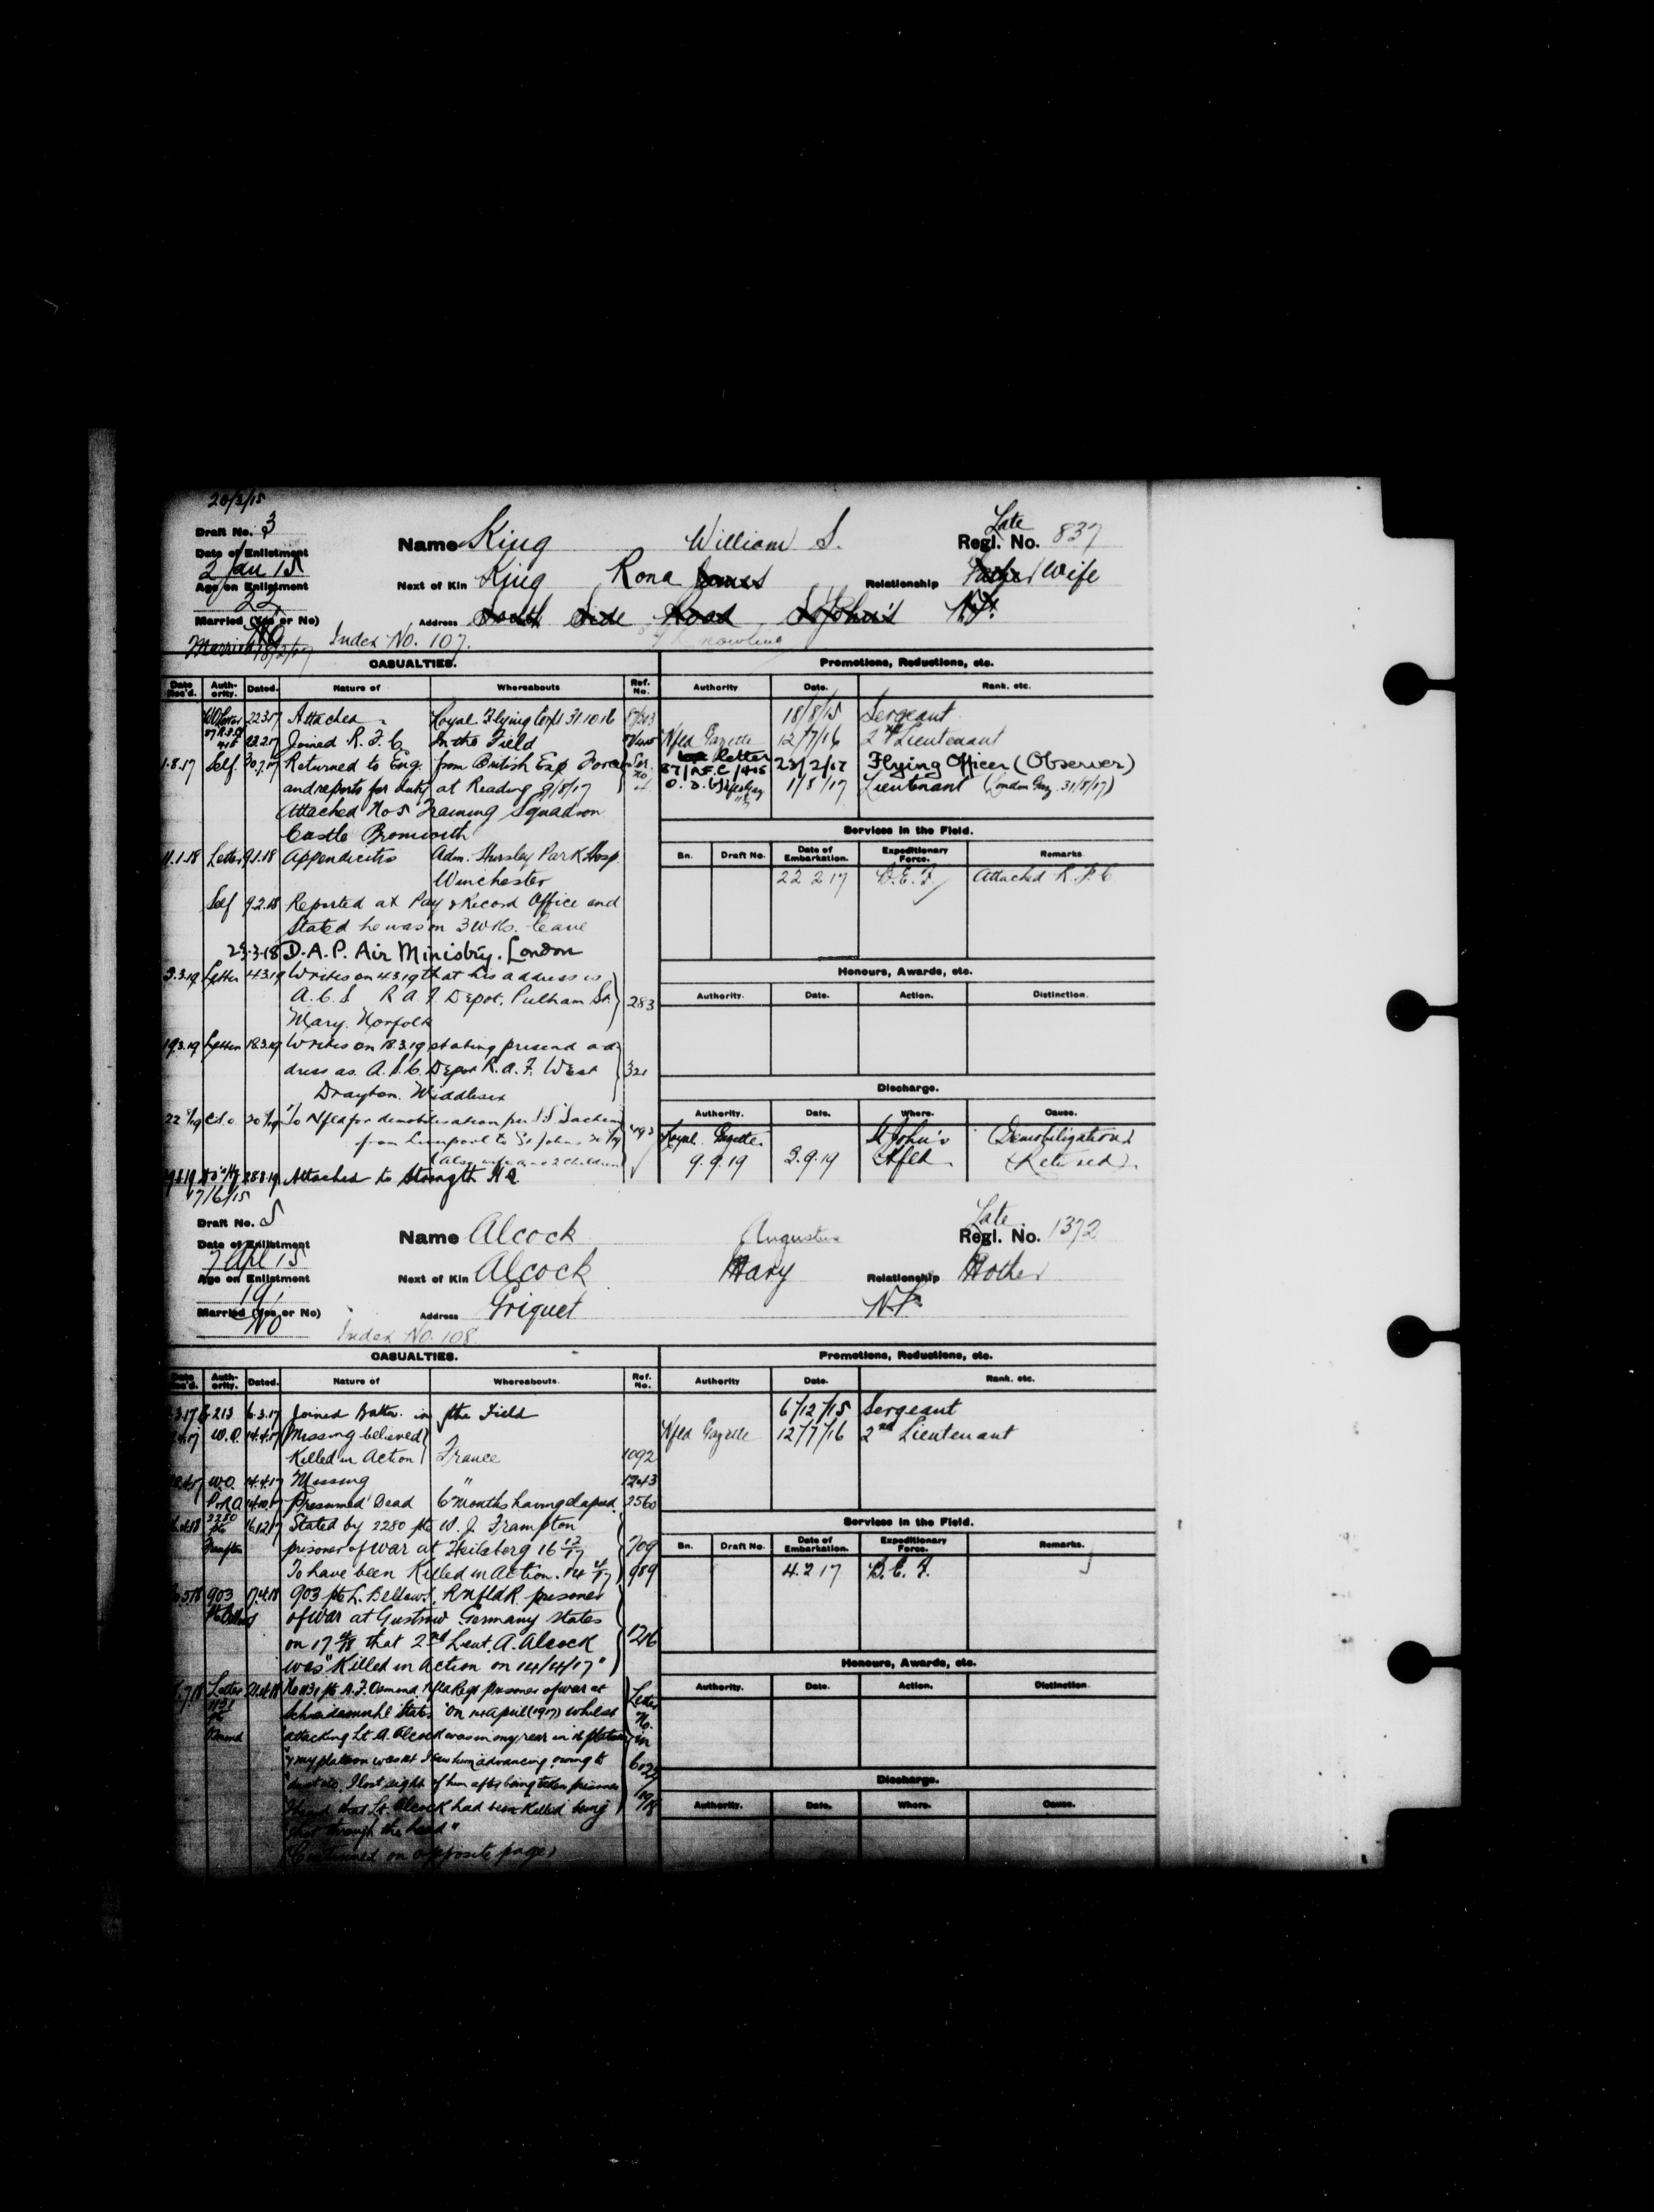 20/3/15
Draft No. 3
Name King William S. Late Regl. No. 837
Date of Enlistment
2 Jan 15
Next of Kin King Rona James Relationship Father Wife
Age on Enlistment
22
Address South Side Road St John's N.F.
Married (Yes or No)
No
Married
Index No. 107.
CASUALTIES.
Date Rec'd. Authority. Dated. Nature of Whereabouts Ref. No.
22.3.17 Attached Royal Flying Corps 31.10.16
22.2.17 Joined R.F.C. In the Field
1.8.17 Self. 30.7.17 Returned to Eng from British Exp Force
and reports for duty at Reading 9/8/17
Attached No 5 Training Squadron
Castle Bromwich
11.1.18 Letter 9.1.18 Appendicitis Adm. Hursley Park Hosp.
Winchester
Self 9.2.18 Reported at Pay & Record Office and
stated he was on 3 wks. leave
23.3.18 D.A.P. Air Ministry. London
Letter 4.3.19 Writes on 4.3.19 that his address is
R A F. Depot, Pulham St. 283
Mary. Norfolk
19.3.19 Letter 18.3.19 Writes on 18.3.19 stating present ad-
dress as. Depot R.A.F. West 321
Drayton. Middlesex
To Nfld for demobilisation per S.S.
from Liverpool to St Johns
(also wife and 2 children)
28.8.19 Attached to Strength H.Q.
Promotions, Reductions, etc.
Authority Date. Rank. etc.
18/8/15 Sergeant
Nfld Gazette 12/7/16 2nd Lieutenant
letter
87/R.F.C/415 23/2/17 Flying Officer (Observer)
1/5/17 Lieutenant (London Gaz. 31/8/17)
Services in the Field.
Bn. Draft No. Date of Embarkation. Expeditionary Force. Remarks
22 2 17 B.E.F. Attached R.F.C
Honours, Awards, etc.
Authority. Date. Action. Distinction.
Discharge.
Authority. Date. Where. Cause.
Royal Gazette St John's Demobilization
9.9.19 3.9.19 Nfld (Retired)
17/6/15
Draft No. 5
Name Alcock Augustus Late Regl. No. 1372
Date of Enlistment
7 Apl 15
Next of Kin Alcock Mary Relationship Mother
Age on Enlistment
19
Address Griquet N.F.
Married (Yes or No)
No
Index No. 108.
CASUALTIES.
Date Rec'd. Authority. Dated. Nature of Whereabouts. Ref. No.
213 6.3.17 Joined Battn. in the Field
W.O. 14.4.17 Missing believed
Killed in Action France 1092
W.O. 14.4.17 Missing " 1243
Presumed Dead 6 months having elapsed 2560
2280 Pte Frampton 16.12.17 Stated by 2280 pte W. J. Frampton
prisoner of war at Heilsberg 16 12/17 709
To have been Killed in Action. 14 4/17 989
903 17.4.18 903 pte L. Bellows, R Nfld R. prisoner
of war at Gustrow Germany states
on 17 4/18 that 2nd Lieut. A. Alcock 1216
was "Killed in Action on 14/4/17"
Letter 1131 pte A. F. Osmond Nfld Regt prisoner of war at
Schneidemuhl States "On 14 April (1917) whilst
attacking Lt A. Alcock was in my rear in
my platoon I saw him advancing. owing to
I lost sight of him after being taken prisoner
I heard that Lt. Alcock had been Killed being
shot through the head"
(Continued on opposite page)
Promotions, Reductions, etc.
Authority Date. Rank. etc.
6/12/15 Sergeant
Nfld Gazette 12/7/16 2nd Lieutenant
Services in the Field.
Bn. Draft No. Date of Embarkation. Expeditionary Force. Remarks.
4.2 17 B.E.F.
Honours, Awards, etc.
Authority. Date. Action. Distinction.
Discharge.
Authority. Date. Where. Cause.